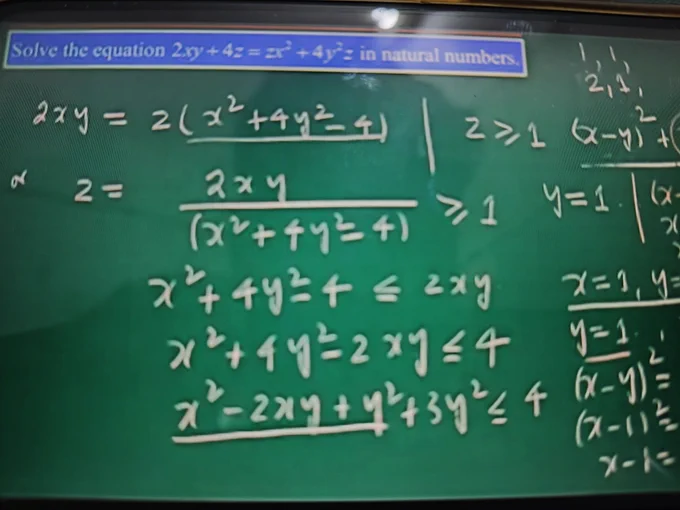 Solve the equation 2xy + 4z = zx² + 4y²z in natural numbers.
1, 1,
2, 1,
2xy = z(x²+4y²-4) | z ⩾ 1 (x-y)² +
or z = 2xy / (x²+4y²-4) ⩾ 1 y=1. | (x-
x²+4y²-4 ≤ 2xy x=1, y=
x²+4y²-2xy ≤ 4 y=1.
x²-2xy+y²+3y² ≤ 4 (x-y)²=
(x-1)²=
x-1=